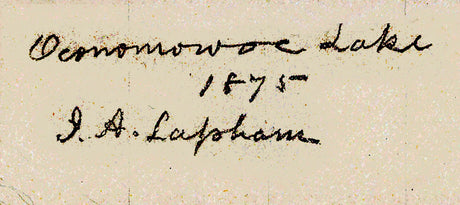 Oconomowoc Lake
1875
I. A. Lapham